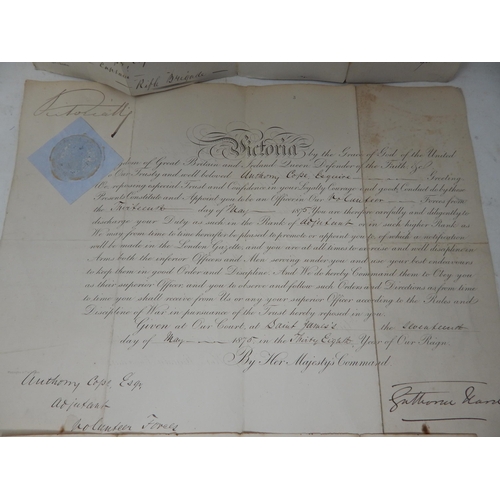 Rifle Brigade
Victoria R
Victoria, by the Grace of God of the United
Kingdom of Great Britain and Ireland Queen, Defender of the Faith, &c.
To Our Trusty and well beloved Anthony Cope Esquire Greeting
We reposing especial Trust and Confidence in your Loyalty, Courage and good Conduct do by these
Presents Constitute and Appoint you to be an Officer in Our Volunteer Forces from the
day of May 1875 You are therefore carefully and diligently to
discharge your Duty as such in the Rank of Adjutant or in such higher Rank as
We may from time to time hereafter be pleased to promote or appoint you to of which a notification
will be made in the London Gazette and you are at all times to exercise and well discipline in
Arms both the inferior Officers and Men serving under you and use your best endeavours
to keep them in good Order and Discipline. And We do hereby Command them to Obey you
as their superior Officer and you to observe and follow such Orders and Directions as from time
to time you shall receive from Us or any your superior Officer according to the Rules and
Discipline of War in pursuance of the Trust hereby reposed in you.
Given at Our Court, at Saint James's the Seventeenth
day of May 1875 in the Thirty Eighth Year of Our Reign
By Her Majesty's Command
Anthony Cope Esqr
Adjutant
Volunteer Forces
Gathorne Hardy